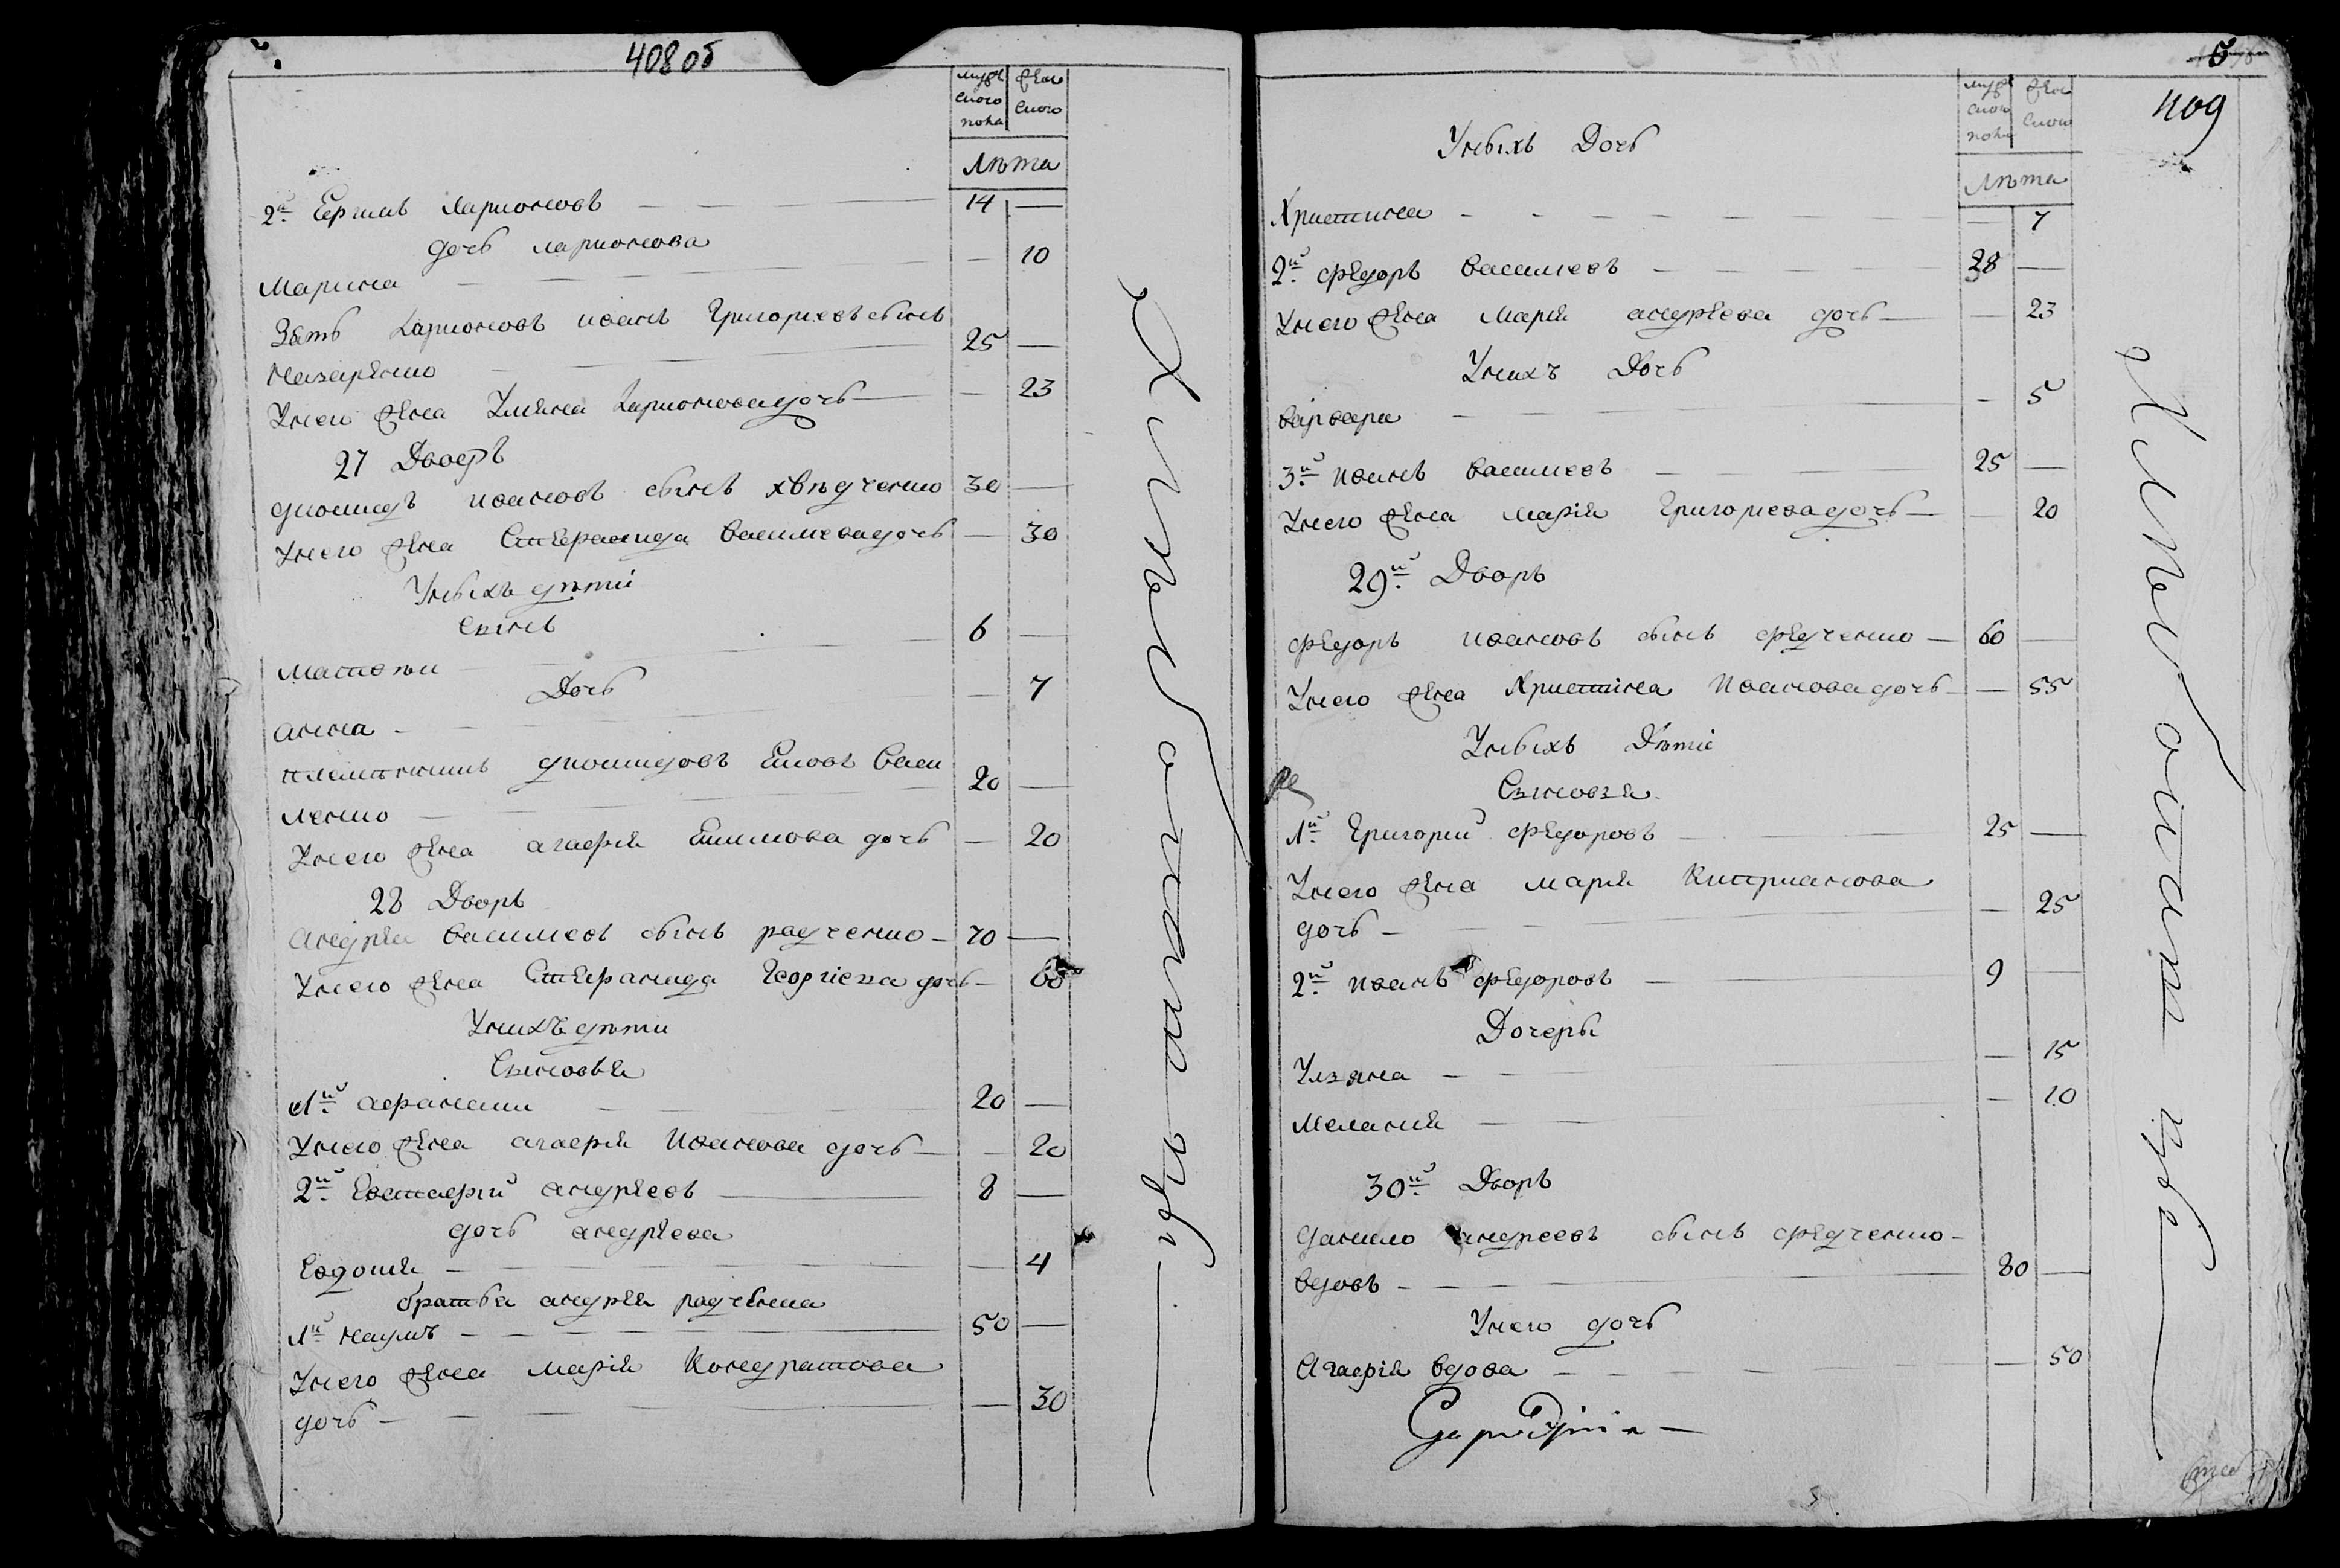 408 об
мужескаго пола
женскаго
Лѣта
2й Ермилъ Ларионовъ 14
дочь Ларионова
Марина 10
Зять Ларионовъ Иванъ Григориевъ сынъ
Назаренко 25
У него жена Ульяна Ларионова дочь 23
27 Дворъ
Диомидъ Ивановъ сынъ Хвѣдченко 30
У него жена Стефанида Василиева дочь 30
У ныхъ дѣти
Сынъ
Матвѣи 6
Дочь
Анна 7
Племянникъ Диомидовъ Василенко 20
У него жена Агафия дочь 20
28 Дворъ
Андрѣи Василиевъ сынъ Радченко 70
У него жена Стефанида Георгиева дочь 60
У нихъ дѣти
Сыновья
1й Афанасии 20
У него жена Агафия Иванова дочь 20
2й Евстафий Андрѣевъ 8
дочь Андрѣева
Евдокия 4
братья Андрѣя Радченка
1й Наумъ 50
У него жена Мария Кондратова
дочь 30
под
мужескаго пола
женскаго
Лѣта
У ныхъ Дочь
Христина 7
2й Федоръ Василиевъ 28
У него жена Мария Андрѣева дочь 23
У нихъ Дочь
Варвара 5
3й Иванъ Василиевъ 25
У него жена Мария Григориева дочь 20
29й Дворъ
Федоръ Ивановъ сынъ Федченко 60
У него жена Христина Иванова дочь 55
У ныхъ Дѣти
Сыновья
1й Григорий Федоровъ 25
У него жена Мария Киприанова
дочь 25
2й Иванъ Федоровъ 9
Дочеры
Ульяна 15
Мелания 10
30й Дворъ
Данило Андреевъ сынъ Федченко
вдовъ 80
У него дочь
Агафия вдова 50